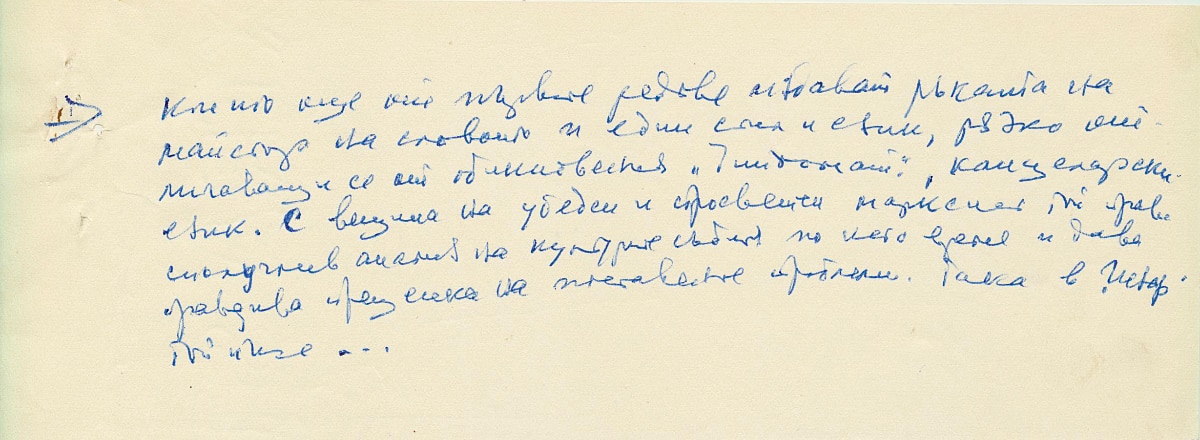 които още от първите редове издават ръката на
майстор на словото и един стил и език, рязко от-
личаващи се от обикновения „ , канцеларски
език. С вещина на убеден и просветен марксист той прави
сполучлив анализ на културните събития по него време и дава
правдива преценка на поставените проблеми. Така в
той пише ...